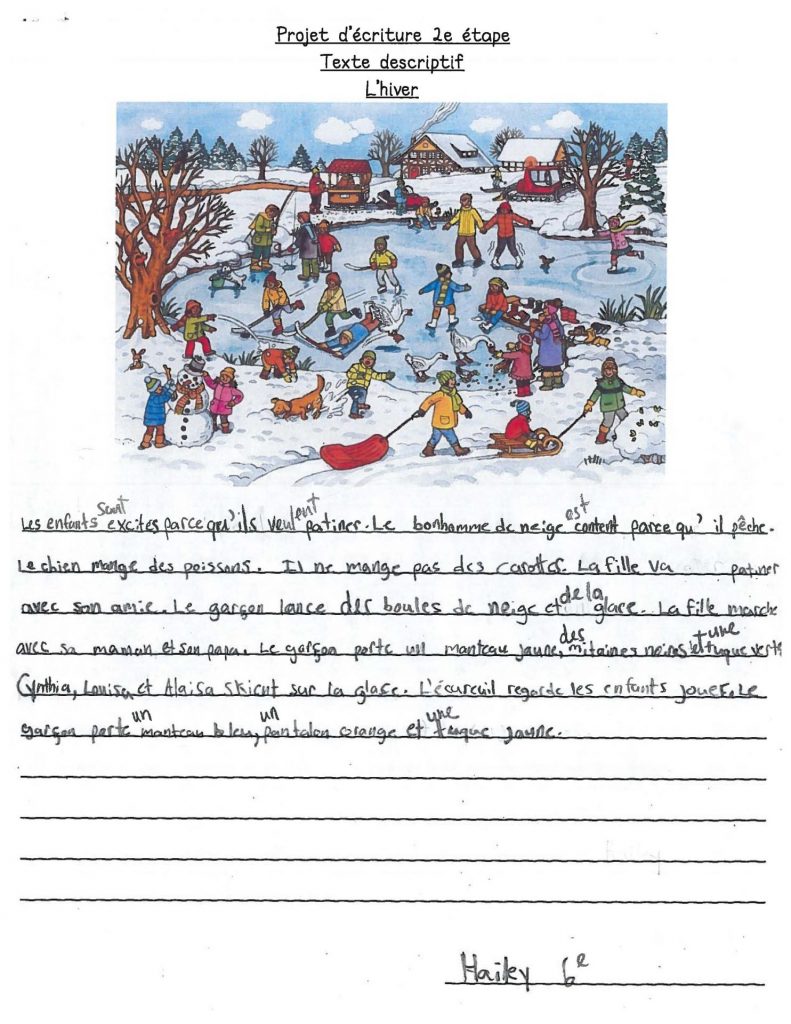 Projet d'écriture 2e étape
Texte descriptif
L'hiver
Les enfants sont excités parce qu'ils veulent patiner. Le bonhomme de neige est content parce qu'il pêche.
Le chien mange des poissons. Il ne mange pas des carottes. La fille va patiner
avec son amie. Le garçon lance des boules de neige et de la glace. La fille marche
avec sa maman et son papa. Le garçon porte un manteau jaune, des mitaines noires et une tuque verte
Cynthia, Louisa, et Alaisa skient sur la glace. L'écureuil regarde les enfants jouer. Le
garçon porte un manteau bleu, un pantalon orange et une tuque jaune.
Hailey 6e